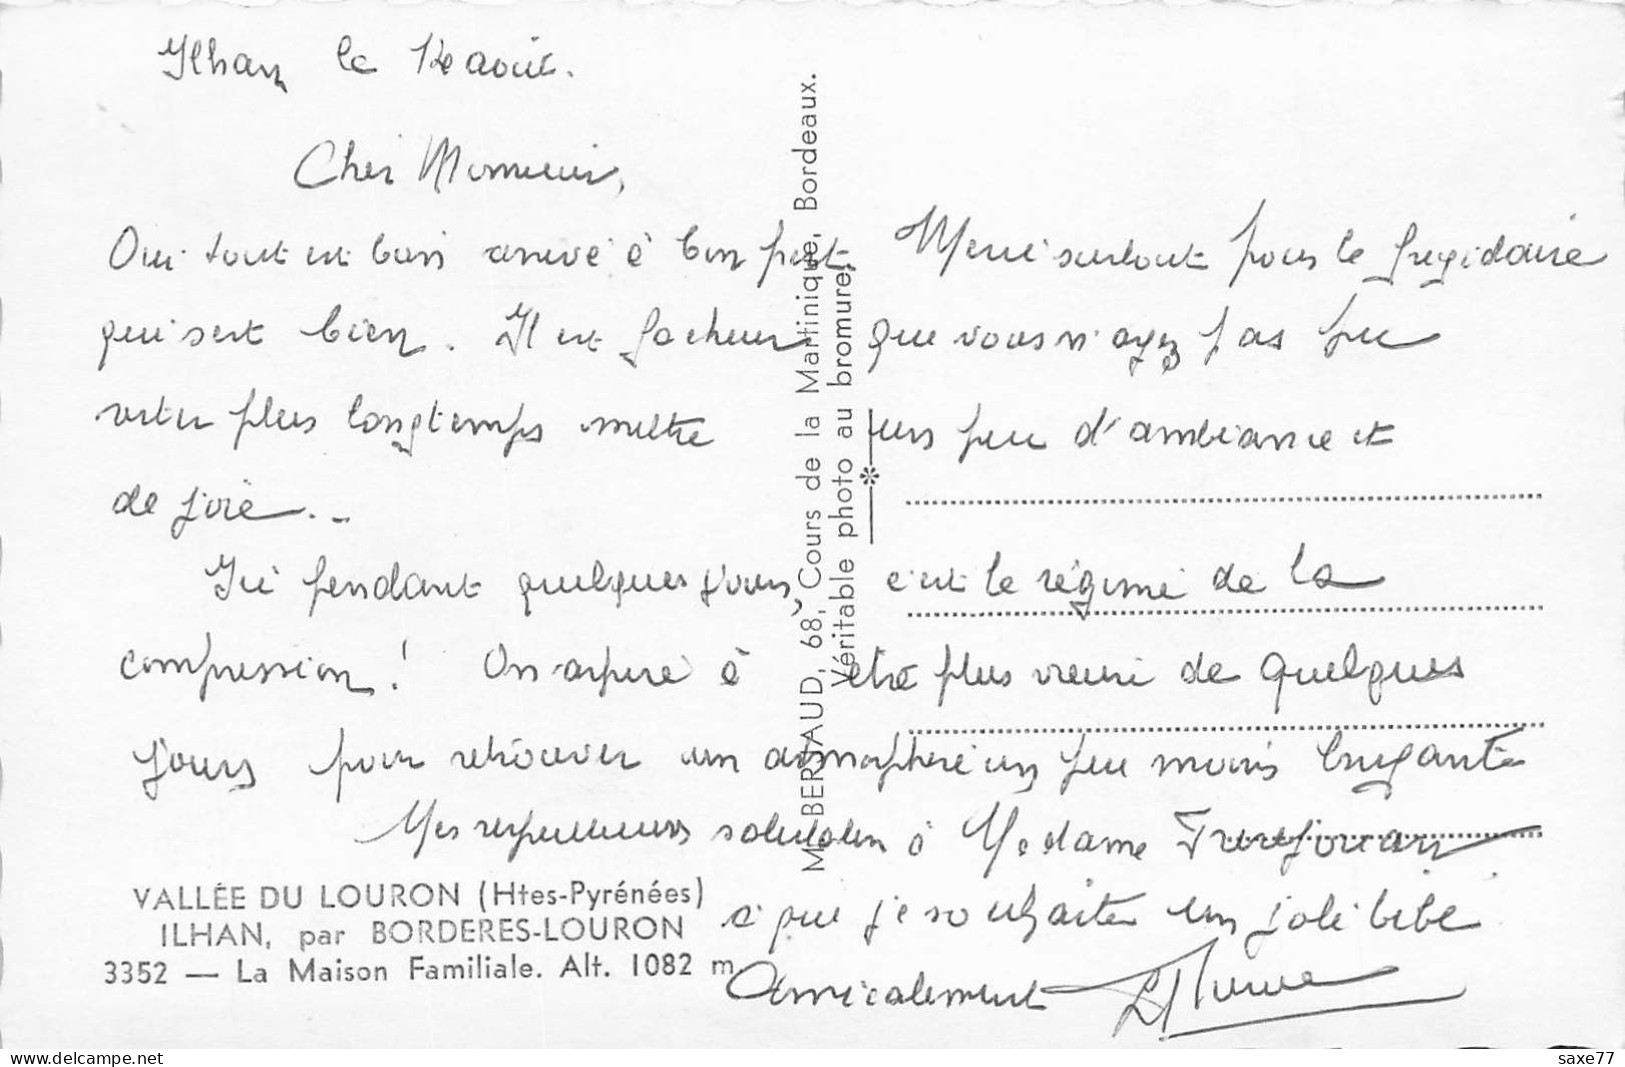 Ilhan le 12 août.
Cher Monsieur,
Oui tout est bien arrivé à bon port. Merci surtout pour le frigidaire
qui sert bien. Il est facheux que vous n'ayez pas pu
rester plus longtemps mettre un peu d'ambiance et
de joie. -
Ici pendant quelques jours, c'est le régime de la
compression ! On aspire à être plus vieux de quelques
jours pour retrouver un atmosphère un peu moins
Mes respectueuses salutations à Madame
à que je souhaite un joli bébé
Amicalement
VALLÉE DU LOURON (Htes-Pyrénées)
ILHAN, par BORDERES-LOURON
3352 — La Maison Familiale. Alt. 1082 m
M. BERJAUD, 68, Cours de la Martinique, Bordeaux.
Véritable photo au bromure.
delcampe.net
saxe77